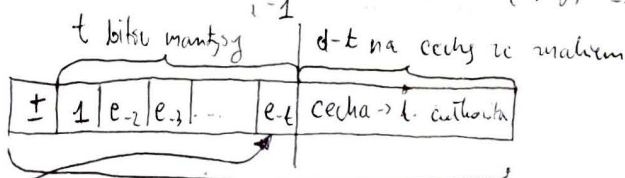 i-1
t bitów mantysy d-t na cechy ze znakiem
± 1 e-2 e-3 ... e-t cecha -> l. całkowita